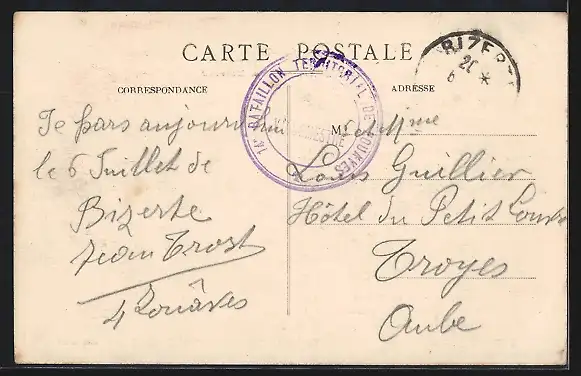 CARTE POSTALE
CORRESPONDANCE
ADRESSE
BIZERT
20
6 *
14e BATAILLON TERRITORIAL DE ZOUAVES
Je pars aujourd'hui
le 6 Juillet de
Bizerte
Jean Trost
4 Zouâves
M. et Mme
Louis Guillier
Hôtel du Petit Louvre
Troyes
Aube